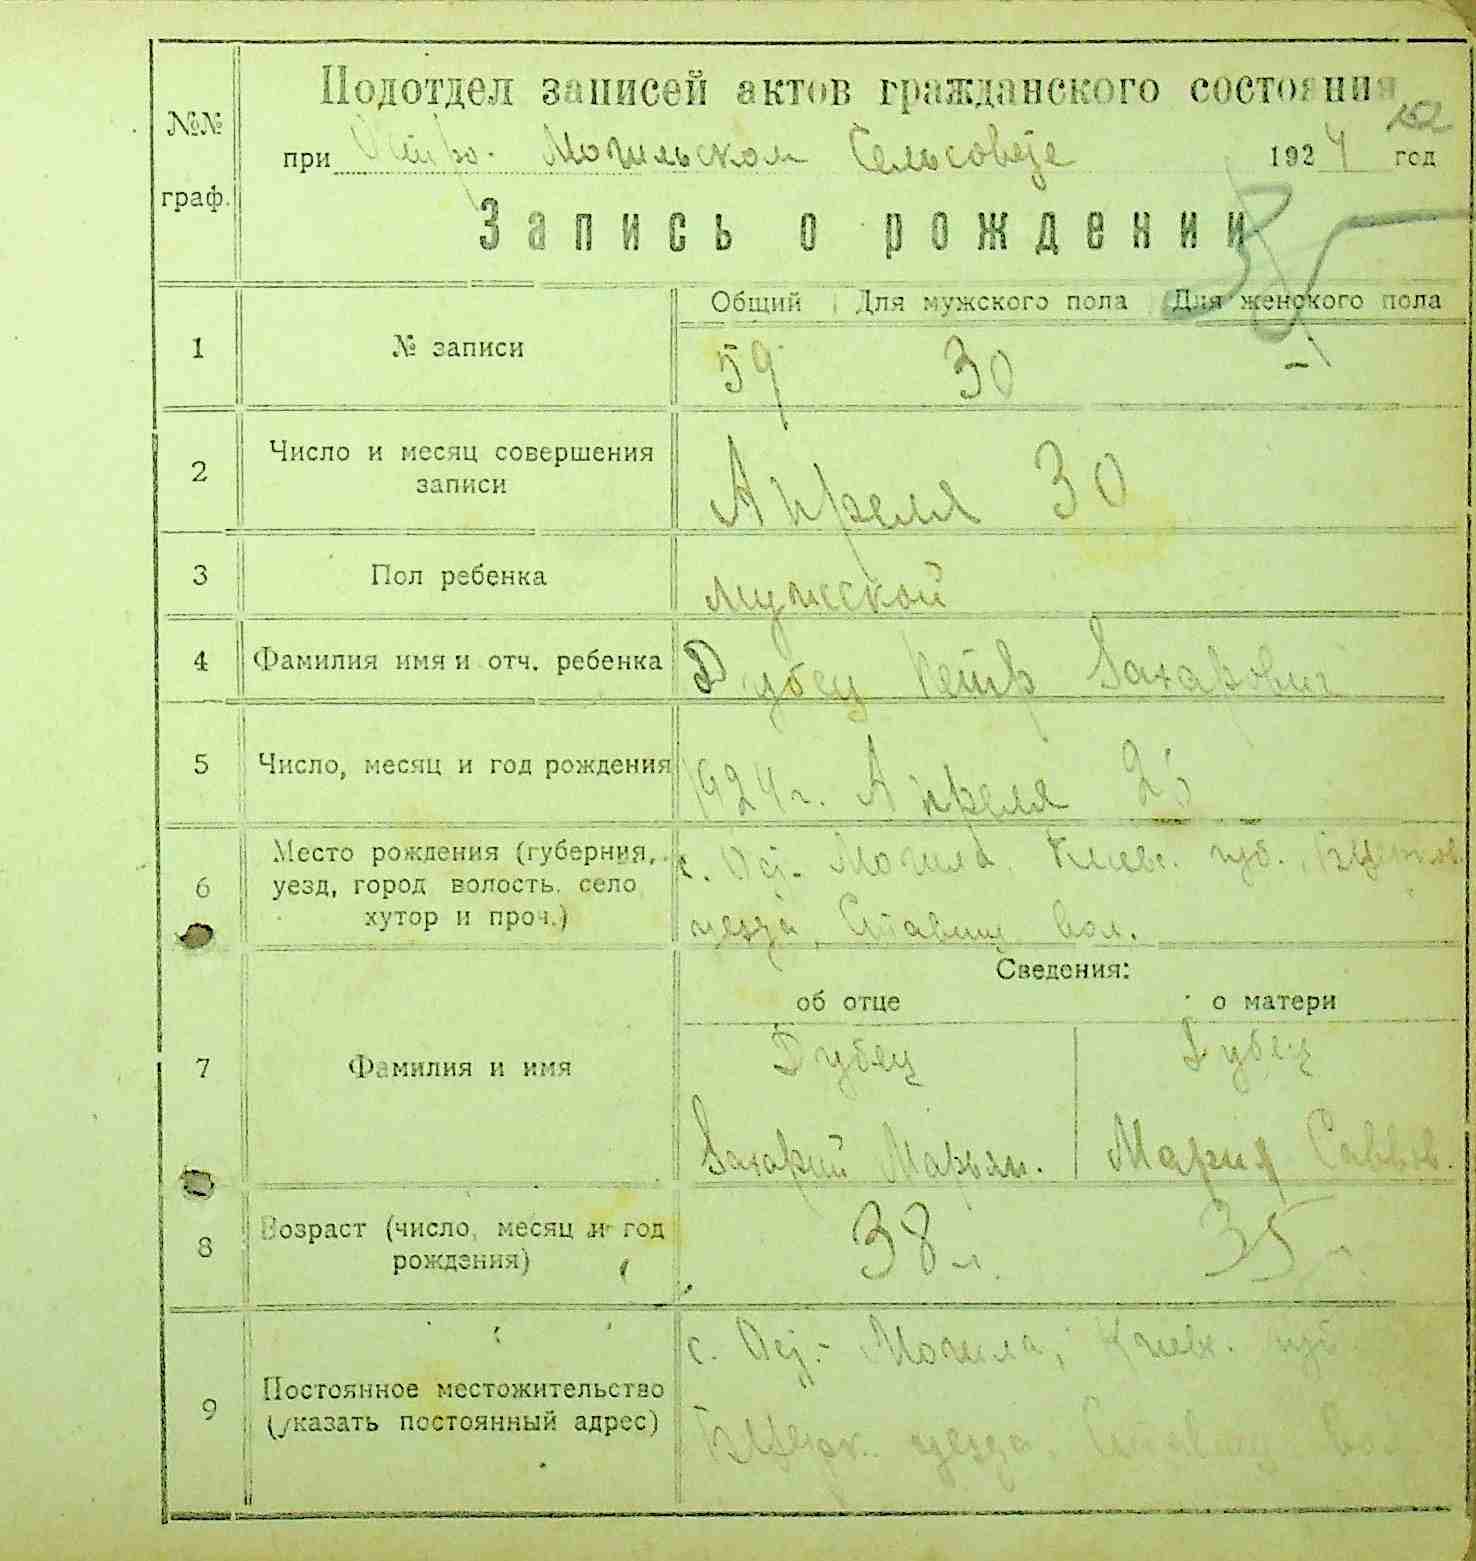 Подотдел записей актов гражданского состояния
№№ граф.
при Остро-Могильском Сельсовете 1924 год
Запись о рождении
35
Общий Для мужского пола Для женского пола
1 № записи 59 30 -
2 Число и месяц совершения записи Апреля 30
3 Пол ребенка мужеской
4 Фамилия имя и отч. ребенка Дубец Петр Захарович
5 Число, месяц и год рождения 1924 г. Апреля
6 Место рождения (губерния, уезд, город волость, село хутор и проч.) с. Ост.- Могила Киев. губ., БЦерков.
уезда, Ставищ. вол.
Сведения:
об отце о матери
7 Фамилия и имя Дубец Дубец
Захарий Марьян. Мария Саввов.
8 Возраст (число, месяц и год рождения) 38 л. 35 л.
9 Постоянное местожительство (указать постоянный адрес) с. Ост.- Могила, Киев. губ.
БЦерк. уезда, Ставищ. вол.